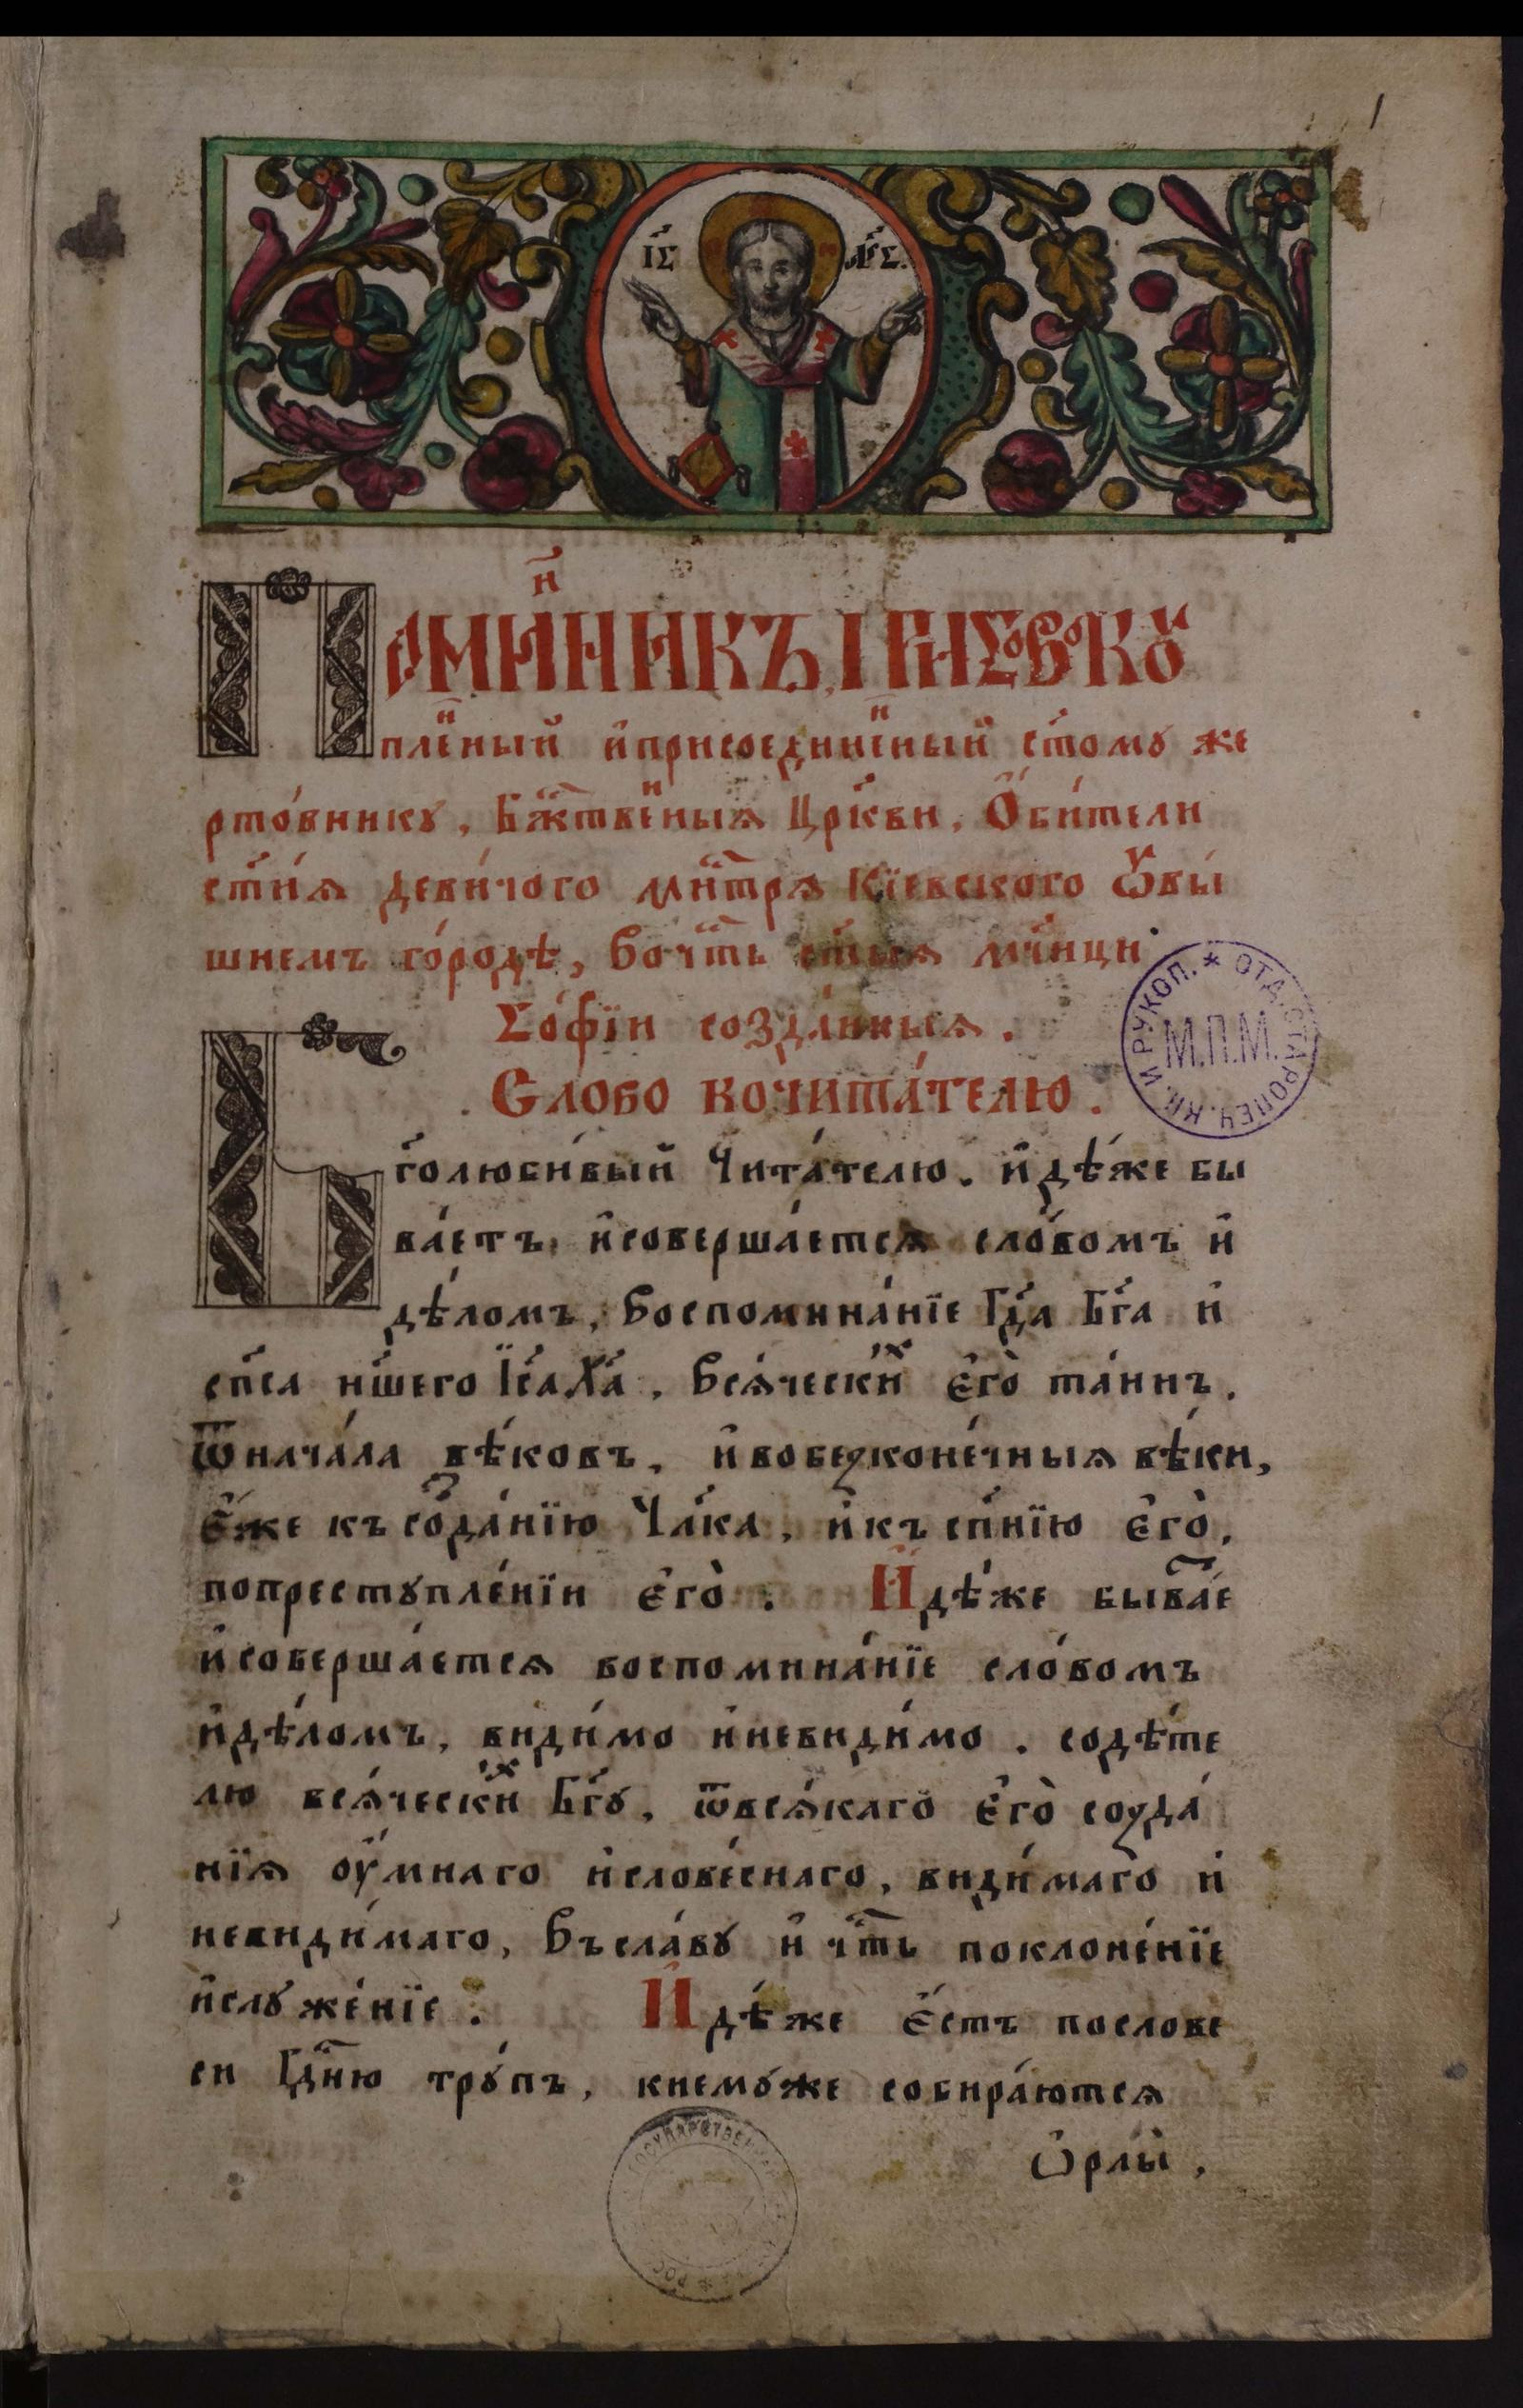 1
І҃С Х҃С.
ПОМИН҃НИКЪ,
плен҃ный и҆присоединен҃ный ст҃ому же
рто́внику, Бж҃твен҃ныѧ Цр҃кви, Ѻ҆би́тели
ст҃и́ѧ деви́чого мн҃трѧ Кїевского ѿвы́
шнемъ го́родѣ, Вочⷭ҇ть ст҃ыѧ мч҃ници
Со́фїи созда́нныѧ.
Слово кочита́телю.
Бг҃олюби́вый Чита́телю. и҆дѣ́же бы
ва́етъ, и҆соверша́етсѧ сло́вомъ и҆
дѣ́ломъ, Воспомина́нїе Гд҃а Бг҃а и҆
сп҃са нш҃его Іс҃а Хр҃а, Всѧ́ческиⷯ є҆гѡ̀ та́инъ.
Ѿнача́ла вѣ́ковъ, и҆вобезконе́чныѧ вѣ́ки,
є҆́же къ соꙁда́нїю Чл҃ка, и҆къ сп҃нїю є҆го̀,
попреступле́нїи є҆го̀. И҆дѣ́же быва́еⷮ
и҆соверша́етсѧ воспомина́нїе сло́вомъ
и҆дѣ́ломъ, види́мо и҆неви́димо. содѣ́те
лю всѧ́ческиⷯ Бг҃у, ѿвсѧ́каго є҆го̀ созда́
нїѧ оу҆́мнаго и҆слове́снаго, види́маго и҆
невиди́маго, Въсла́ву и҆ чⷭ҇ть поклоне́нїе
и҆служе́нїе. И҆дѣ́же є҆́стъ послове
си Гд҃ню тру́пъ, кнему́же собира́ютсѧ
ѻ҆рлы̀,
ОТД. СТАРОПЕЧ. КН. И РУКОП. *
М.П.М.